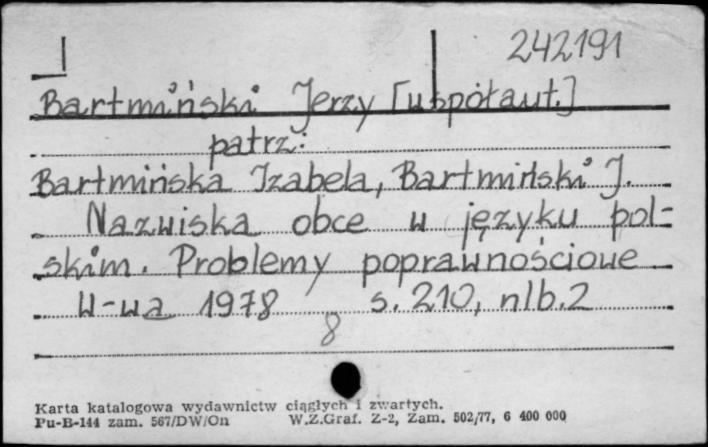 242191
Bartmiński Jerzy [współaut.]
patrz:
Bartmińska Izabela, Bartmiński J.
Nazwiska obce w języku pol-
skim. Problemy poprawnościowe
W-wa 1978 s. 210, nlb. 2
8
Karta katalogowa wydawnictw ciągłych i zwartych.
Pu-B-144 zam. 567/DW/On W.Z.Graf. Z-2, Zam. 502/77, 6 400 000